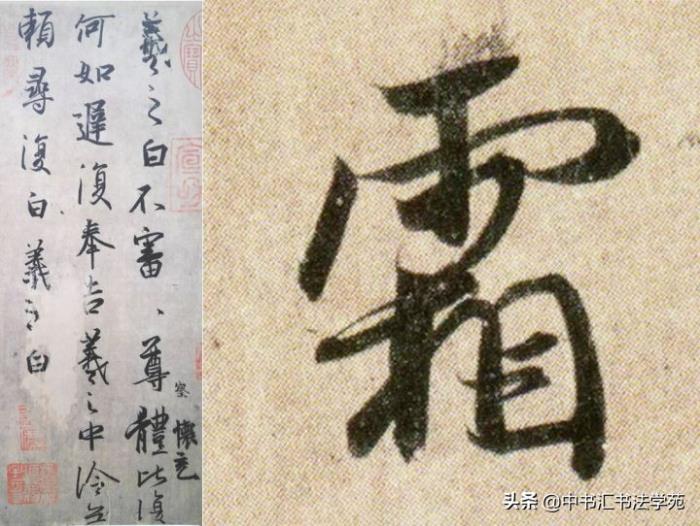 羲之白不審、尊體比復
何如遲復奉告羲之中冷無
賴尋復白羲之白
察
懷充
霜
头条 @中书汇书法学苑